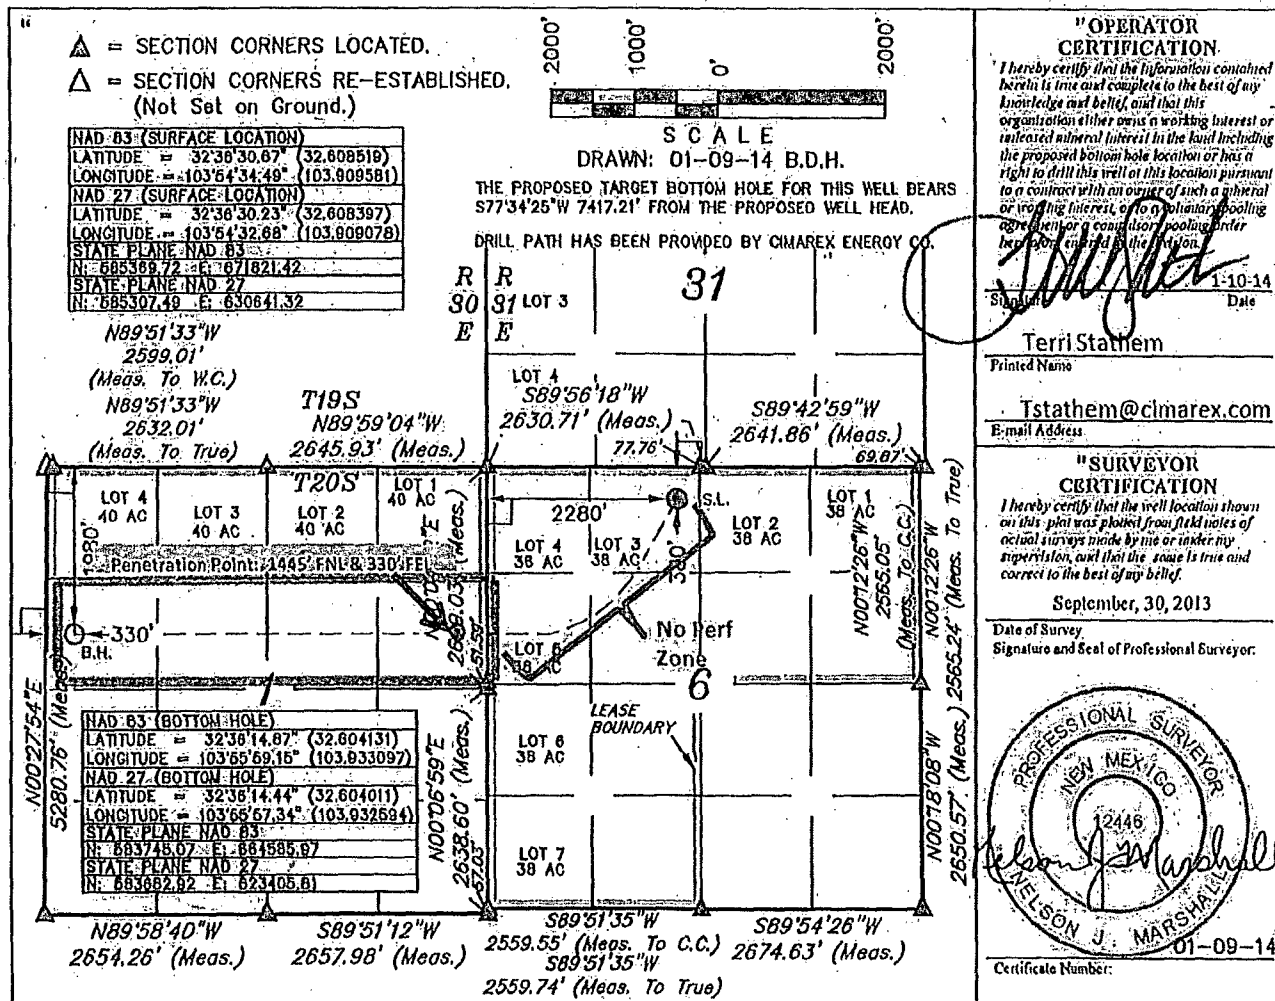 = SECTION CORNERS LOCATED.
= SECTION CORNERS RE-ESTABLISHED.
(Not Set on Ground.)
NAD 83 (SURFACE LOCATION)
LATITUDE = 32°36'30.67" (32.608519)
LONGITUDE = 103°54'34.49" (103.909581)
NAD 27 (SURFACE LOCATION)
LATITUDE = 32°36'30.23" (32.608397)
LONGITUDE = 103°54'32.68" (103.909078)
STATE PLANE NAD 83
N: 585369.72 E: 671821.42
STATE PLANE NAD 27
N: 585307.49 E: 630641.32
2000' 1000' 0' 2000'
SCALE
DRAWN: 01-09-14 B.D.H.
THE PROPOSED TARGET BOTTOM HOLE FOR THIS WELL BEARS
S77°34'25"W 7417.21' FROM THE PROPOSED WELL HEAD.
DRILL PATH HAS BEEN PROVIDED BY CIMAREX ENERGY CO.
R R
30 31
E E
LOT 3
31
LOT 4
N89°51'33"W
2599.01'
(Meas. To W.C.)
N89°51'33"W
2632.01'
(Meas. To True)
T19S
N89°59'04"W
2645.93' (Meas.)
S89°56'18"W
2630.71' (Meas.)
77.76'
S89°42'59"W
2641.86' (Meas.)
69.87'
T20S
LOT 4
40 AC
LOT 3
40 AC
LOT 2
40 AC
LOT 1
40 AC
2280'
S.L.
380'
LOT 4
38 AC
LOT 3
38 AC
LOT 2
38 AC
LOT 1
38 AC
1980'
Penetration Point: 1445' FNL & 330' FEL
330'
B.H.
51.59'
LOT 5
38 AC
No Perf
Zone
1
6
N00°12'26"W
2555.05'
(Meas. To C.C.)
N00°12'26"W
2565.24' (Meas. To True)
N00°27'54"E
5280.76' (Meas.)
NAD 83 (BOTTOM HOLE)
LATITUDE = 32°36'14.87" (32.604131)
LONGITUDE = 103°55'59.15" (103.933097)
NAD 27 (BOTTOM HOLE)
LATITUDE = 32°36'14.44" (32.604011)
LONGITUDE = 103°55'57.34" (103.932594)
STATE PLANE NAD 83
N: 583745.07 E: 664585.97
STATE PLANE NAD 27
N: 583682.92 E: 623405.81
N00°06'59"E
2638.60' (Meas.)
57.03'
LOT 6
38 AC
LEASE
BOUNDARY
LOT 7
38 AC
N00°18'08"W
2650.57' (Meas.)
N89°58'40"W
2654.26' (Meas.)
S89°51'12"W
2657.98' (Meas.)
S89°51'35"W
2559.55' (Meas. To C.C.)
S89°51'35"W
2559.74' (Meas. To True)
S89°54'26"W
2674.63' (Meas.)
"OPERATOR
CERTIFICATION
I hereby certify that the information contained
herein is true and complete to the best of my
knowledge and belief, and that this
organization either owns a working interest or
unleased mineral interest in the land including
the proposed bottom hole location or has a
right to drill this well at this location pursuant
to a contract with an owner of such a mineral
or working interest, or to a voluntary pooling
agreement or a compulsory pooling order
heretofore entered by the division.
1-10-14
Signature Date
Terri Stathem
Printed Name
Tstathem@cimarex.com
E-mail Address
"SURVEYOR
CERTIFICATION
I hereby certify that the well location shown
on this plat was plotted from field notes of
actual surveys made by me or under my
supervision, and that the same is true and
correct to the best of my belief.
September, 30, 2013
Date of Survey
Signature and Seal of Professional Surveyor:
PROFESSIONAL SURVEYOR
NEW MEXICO
12446
Nelson J. Marshall
NELSON J. MARSHALL
01-09-14
Certificate Number: